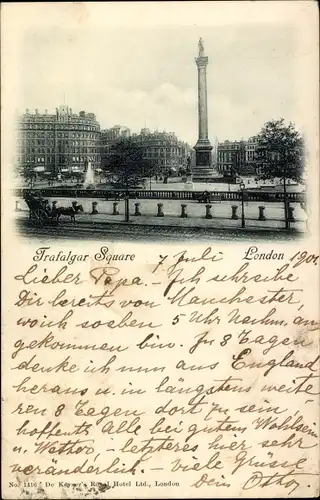 Trafalgar Square London
7 Juli 190
Lieber Papa. - Ich schreibe
Dir bereits von Manchester,
woich soeben 5 Uhr Nachm. an
gekommen bin. In 3 Tagen
denke ich nun aus England
heraus u. in längstens weite-
ren 8 Tagen dort zu sein
hoffentl. Alle bei gutem Wohlsein
u. Wetter, - letzteres hier sehr
veränderlich. - viele Grüsse
Dein Otto.
No. 1416 De Keyser's Royal Hotel Ltd., London